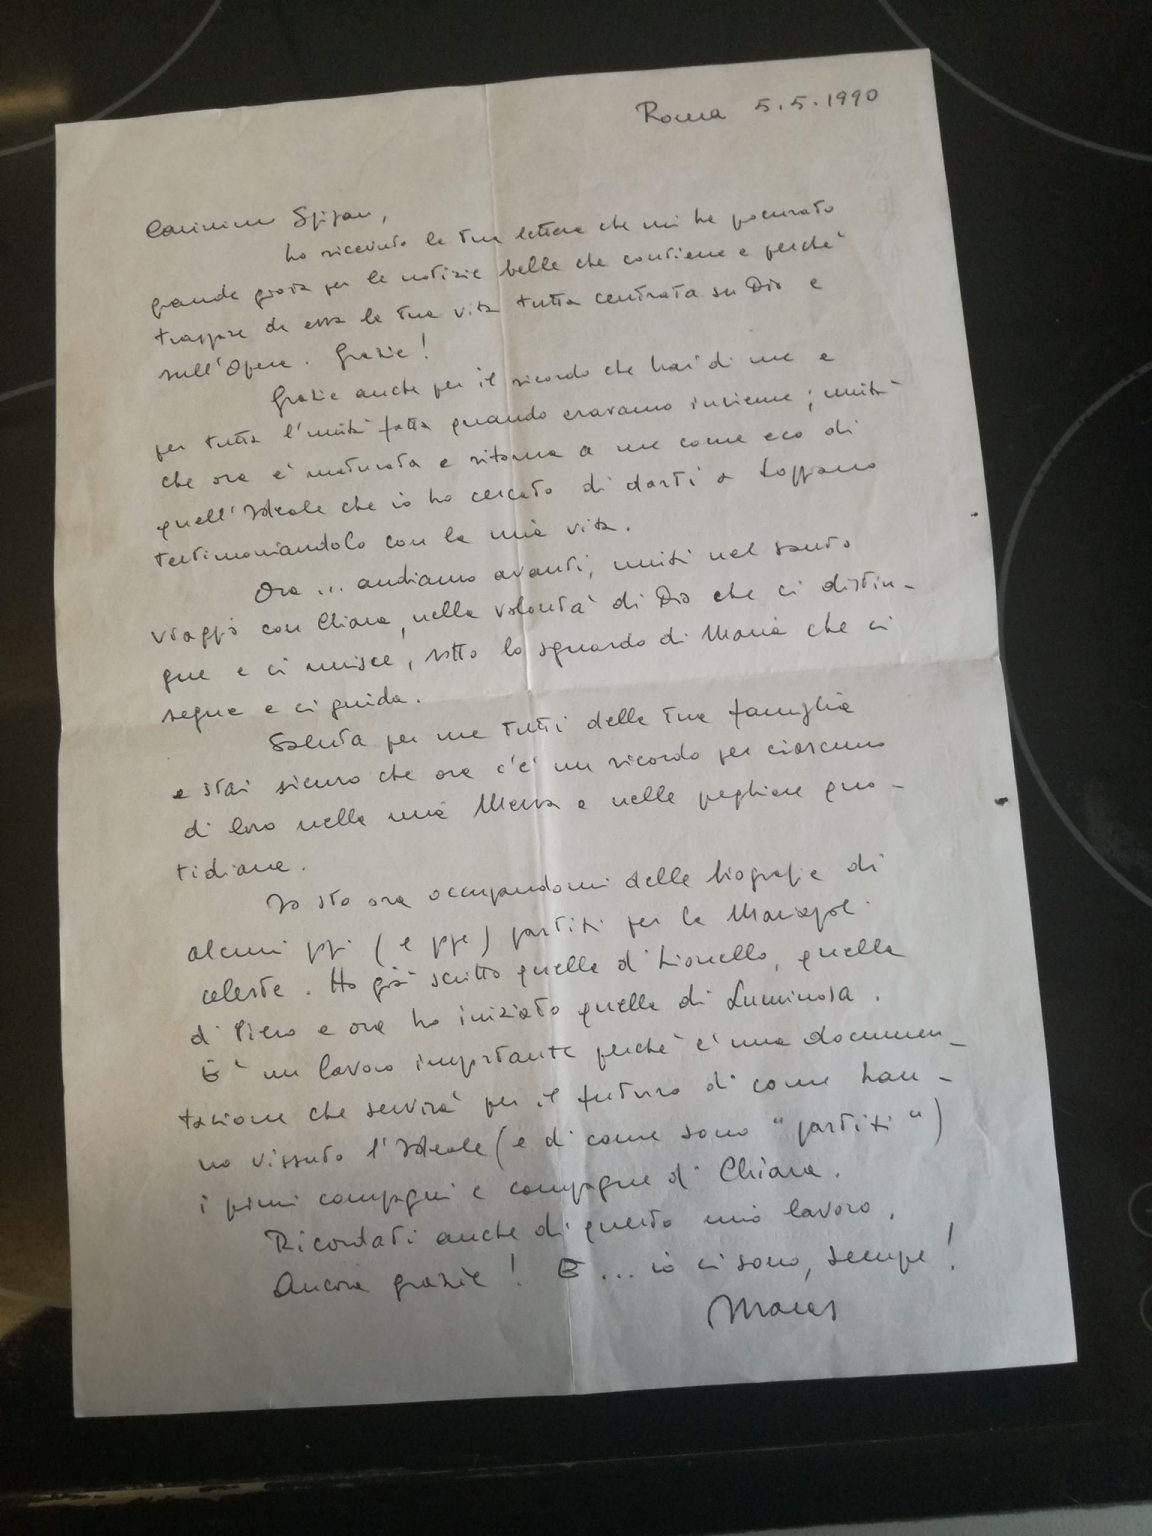 Roma 5.5.1990
Carissimo Stjepan,
ho ricevuto la tua lettera che mi ha procurato
grande gioia per le notizie belle che contiene e perché
traspare da essa la tua vita tutta centrata su Dio e
sull'Opera. Grazie!
Grazie anche per il ricordo che hai di me e
per tutta l'unità fatta quando eravamo insieme; unità
che ora è maturata e ritorna a me come eco di
quell'Ideale che io ho cercato di darti a Loppiano
testimoniandolo con la mia vita.
Ora ... andiamo avanti, uniti nel santo
viaggio con Chiara, nella volontà di Dio che ci distin-
gue e ci unisce, sotto lo sguardo di Maria che ci
segue e ci guida.
Saluta per me tutti della tua famiglia
e stai sicuro che ora c'è un ricordo per ciascuno
di loro nella mia Messa e nelle preghiere quo-
tidiane.
Io sto ora occupandomi delle biografie di
alcuni ppi (e ppe) partiti per la Mariapoli
celeste. Ho già scritto quella di Lionello, quella
di Piero e ora ho iniziato quella di Luminosa.
È un lavoro importante perché è una documen-
tazione che servirà per il futuro di come han-
no vissuto l'Ideale (e di come sono "partiti")
i primi compagni e compagne di Chiara.
Ricordati anche di questo mio lavoro.
Ancora grazie! E ... io ci sono, sempre!